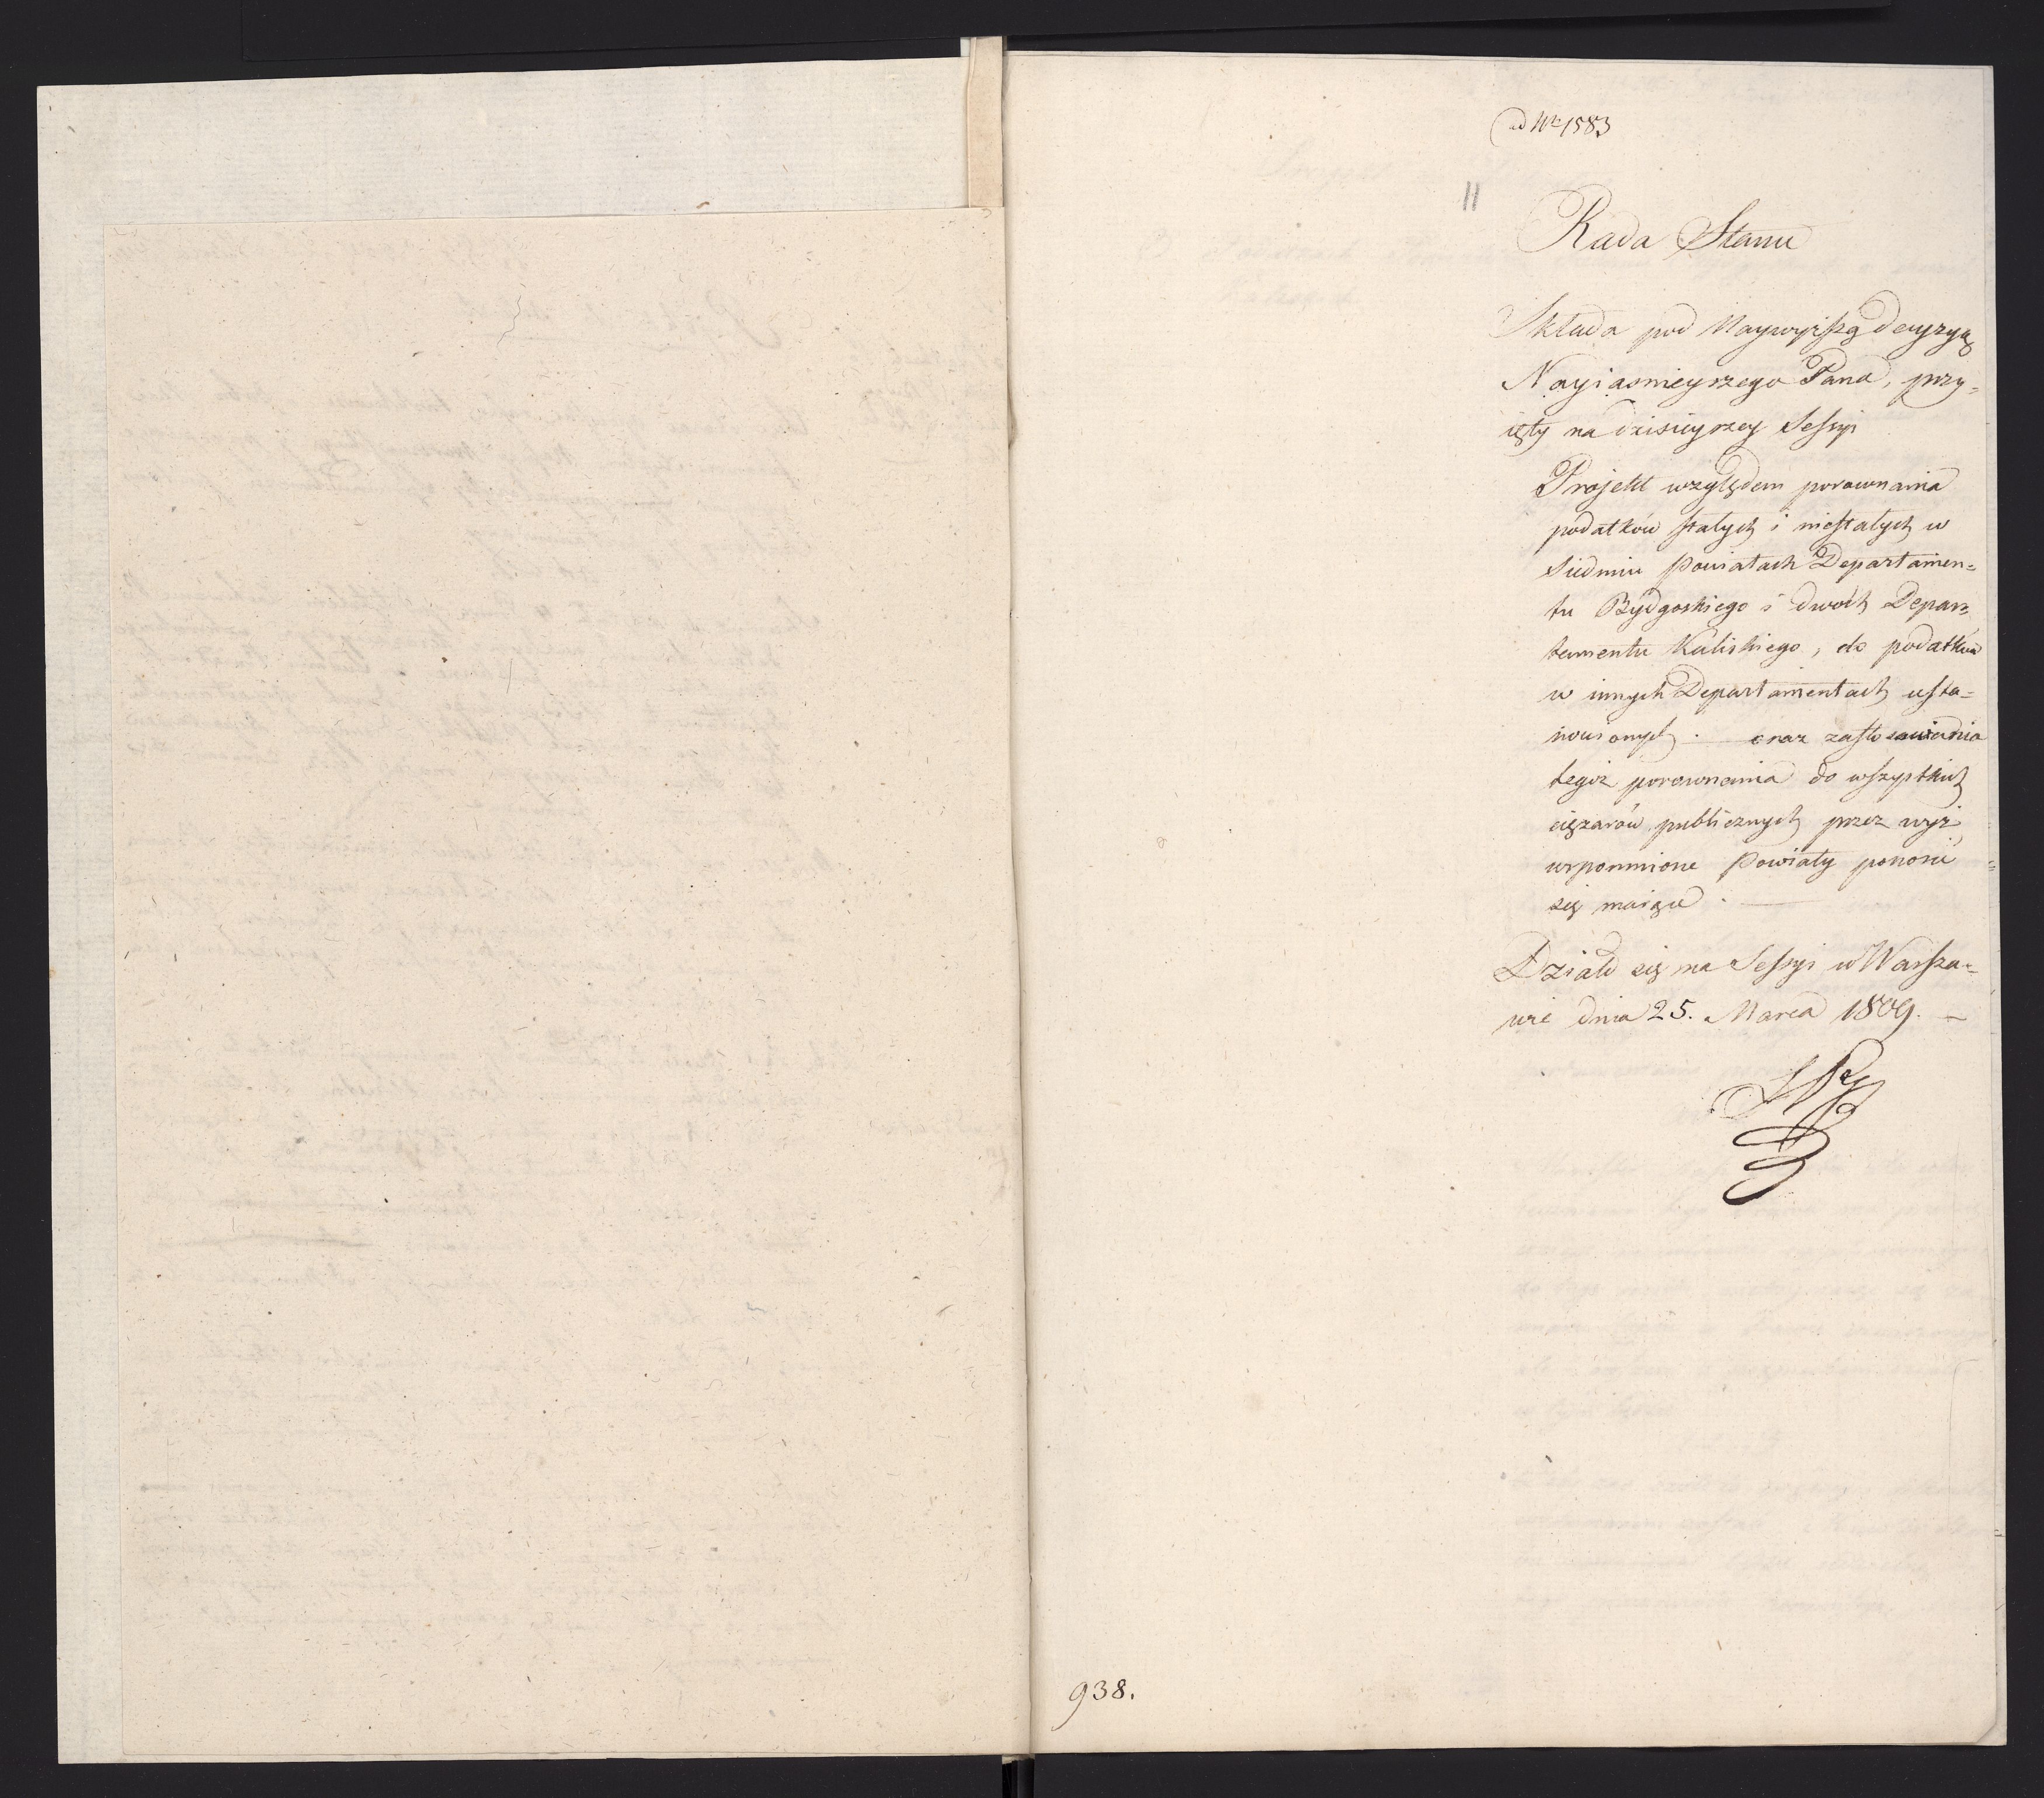 ad Nr 1583
11
Rada Stanu
Składa pod Naywyższą decyzyą
Nayiasnieyszego Pana, przy=
ięty na dzisieyszey Sessyi
Projekt względem porownania
podatków stałych i niestałych w
siedmiu Powiatach Departamen=
tu Bydgoskiego i dwóch Depar=
tamentu Kaliskiego, do podatków
w innych Departamentach usta=
nowionych. — oraz zastosowania
tegoż porownania do wszystkich
ciężarów publicznych przez wyż
wspomnione Powiaty ponosić
się maiące. —
Działo się na Sessyi w Warsza=
wie dnia 25. Marca 1809. —
938.